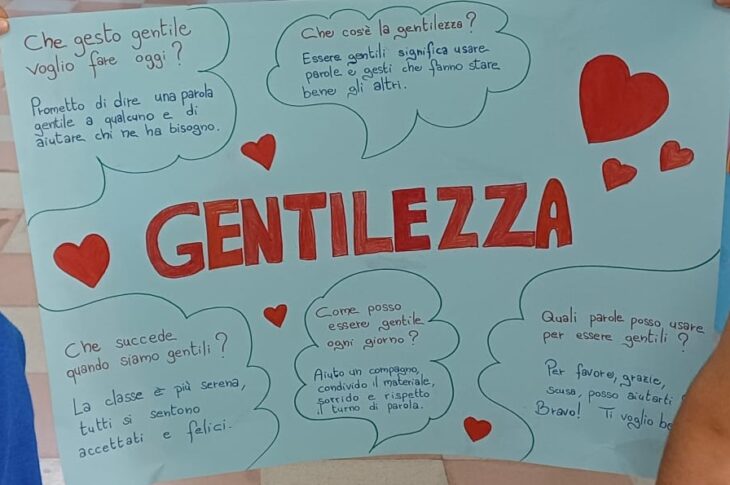 Che gesto gentile
voglio fare oggi?
Prometto di dire una parola
gentile a qualcuno e di
aiutare chi ne ha bisogno.
Che cos'è la gentilezza?
Essere gentili significa usare
parole e gesti che fanno stare
bene gli altri.
GENTILEZZA
Che succede
quando siamo gentili?
La classe è più serena,
tutti si sentono
accettati e felici.
Come posso
essere gentile
ogni giorno?
Aiuto un compagno,
condivido il materiale,
sorrido e rispetto
il turno di parola.
Quali parole posso usare
per essere gentili?
Per favore, grazie,
scusa, posso aiutarti
Bravo! Ti voglio